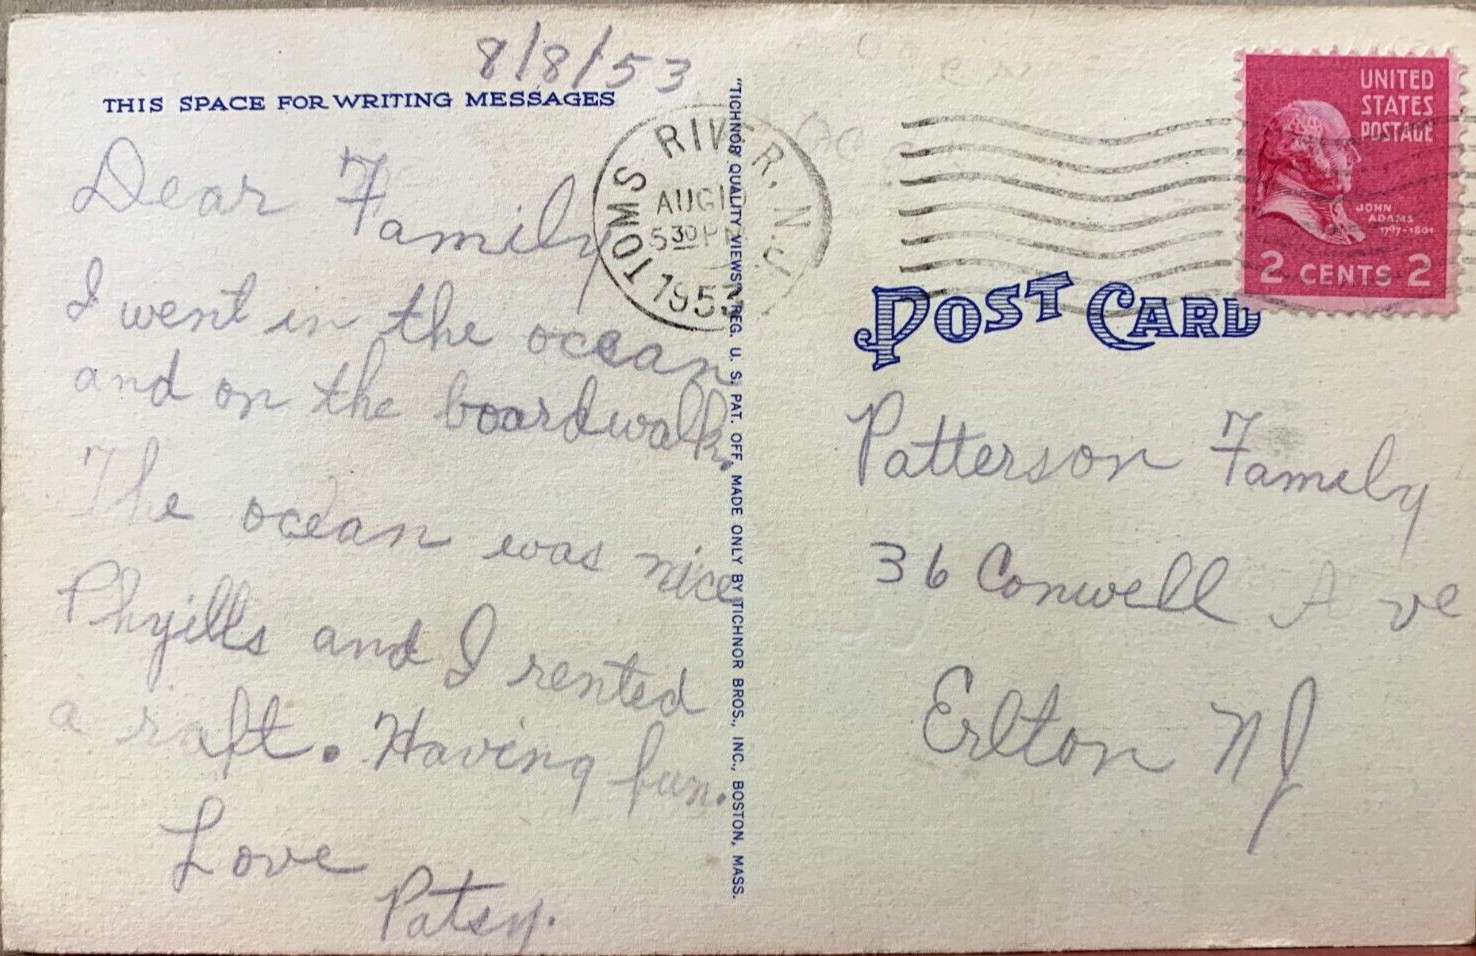 8/8/53
THIS SPACE FOR WRITING MESSAGES
Dear Family
I went in the ocean
and on the boardwalk.
The ocean was nice
Phyills and I rented
a raft. Having fun.
Love
Patsy.
"TICHNOR QUALITY VIEWS" REG. U. S. PAT. OFF. MADE ONLY BY TICHNOR BROS., INC., BOSTON, MASS.
TOMS RIVER, N.J.
AUG 10
530 PM
1953
UNITED
STATES
POSTAGE
JOHN
ADAMS
1797-1801
2 CENTS 2
POST CARD
Patterson Family
36 Conwell Ave
Erlton NJ